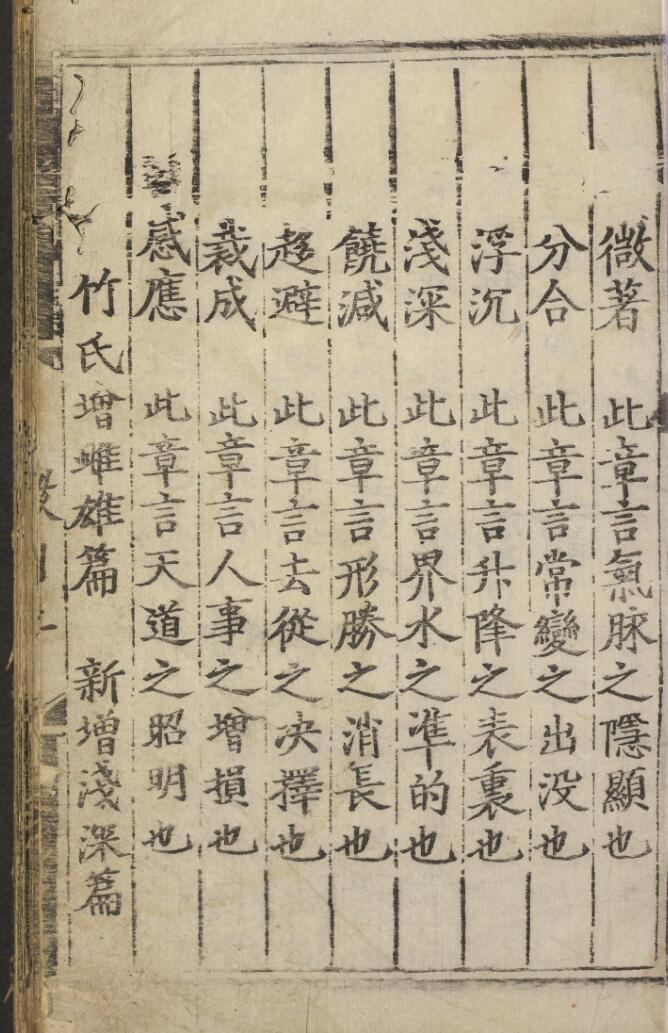 微著 此章言氣脉之隱顯也
分合 此章言常變之出没也
浮沉 此章言升降之表裏也
淺深 此章言界水之凖的也
饒減 此章言形勝之消長也
趍避 此章言去從之决擇也
裁成 此章言人事之增損也
感應 此章言天道之昭明也
竹氏增雌雄篇 新增淺深篇